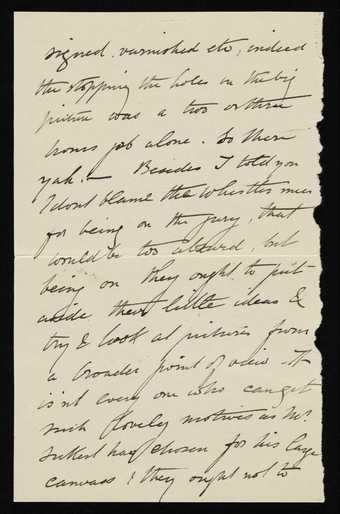 signed, varnished etc, indeed
the stopping the holes in the big
picture was a two or three
hours job alone. So there
yah! — Besides I told you
I dont blame the Whistler men
for being on the jury, that
would be too absurd, but
being on they ought to put
aside their little ideas &
try & look at pictures from
a broader point of view - It
isn't every one who can get
such lovely motives as Mr.
Sickert has chosen for his large
canvass & they ought not to